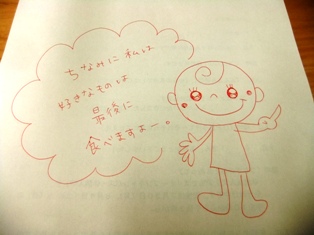 ちなみに私は
好きなものは
最後に
食べますよー。